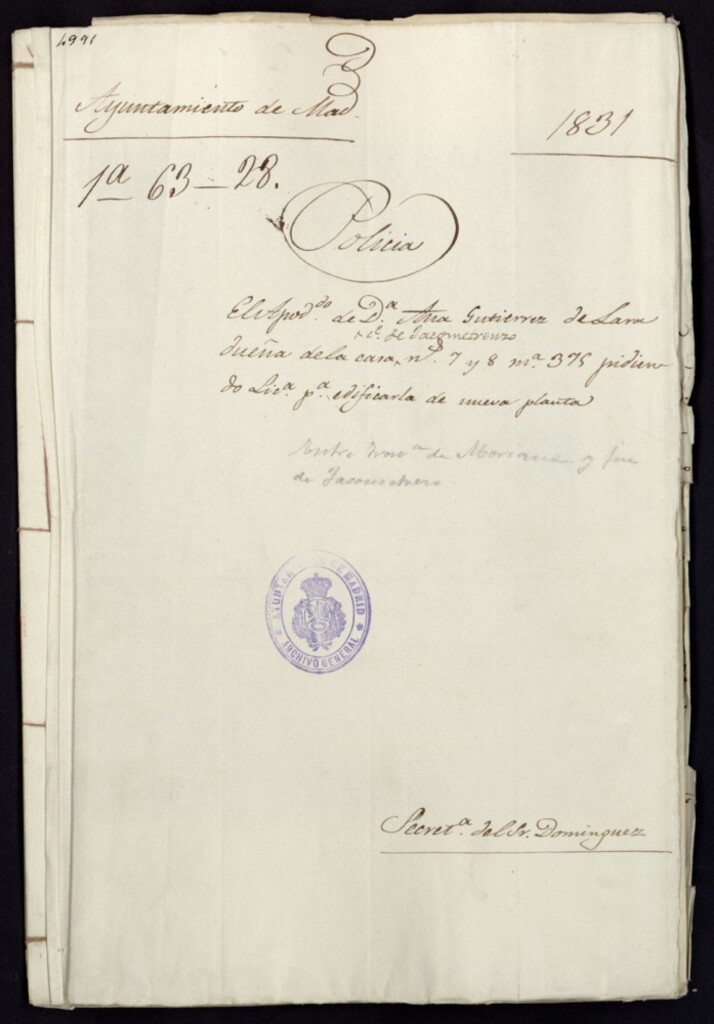 1991
Ayuntamiento de Mad.
1831
1ª 63-28.
Policia
El Apodº. de Dª. Ana Gutierrez de Lara
cº. de Jacometrenzo
dueña de la casa nº. 7 y 8 mª. 375 pidien
do Licª. pª. edificarla de nueva planta
Entre travª de Moriana y
de Jacometrezo
AYUNTAMIENTO DE MADRID
ARCHIVO GENERAL
Secretª. del Sr. Dominguez